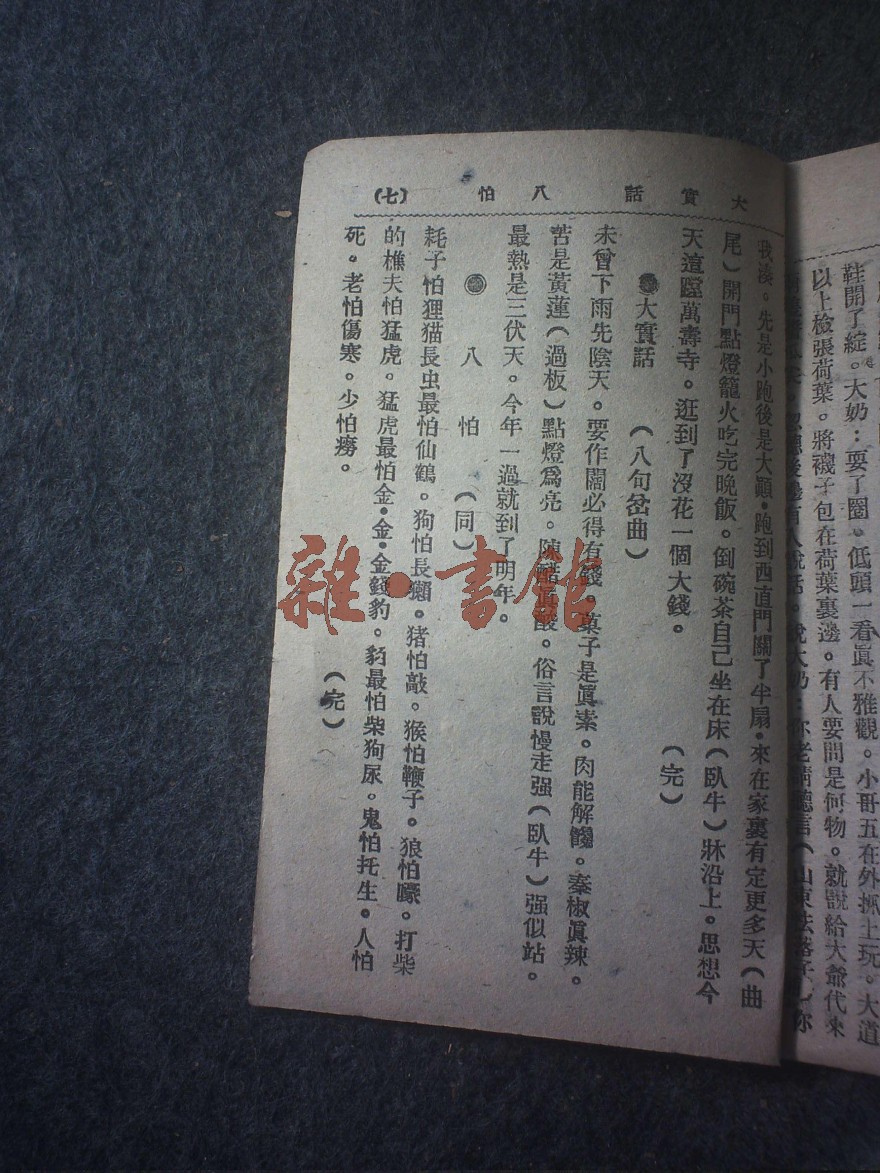 鞋開了綻。大奶：要了圈。低頭一看眞不雅觀。小哥五在外抓土玩。大道
以上檢張荷葉。將襪子包在荷葉裏邊。有人要問是何物。就說給大爺代來
後邊有人說話。說大奶：你老
大實話 八怕 (七)
我湊。先是小跑後是大顚。跑到西直門關了半扇。來在家裏有定更多天（曲
尾）開門點燈籠火吃完晚飯。倒碗茶自己坐在床（臥牛）牀沿上。思想今
天這蹚萬壽寺。逛到了沒花一個大錢。 （完）
大實話 （八句岔曲）
未曾下雨先陰天。要作闊必得有錢。菓子是眞素。肉能解饞。秦椒眞辣。
苦是黃蓮（過板）點燈爲亮。陳醋眞酸。俗言說慢走强（臥牛）强似站。
最熱是三伏天。今年一過就到了明年。
八怕 （同）
耗子怕狸猫長虫最怕仙鶴。狗怕長獺。猪怕敲。猴怕鞭子。狼怕蹶。打柴
的樵夫怕猛虎。猛虎最怕金·金·金錢豹。豹最怕柴狗尿。鬼怕托生。人怕
死。老怕傷寒。少怕癆。 （完）
雜·書館